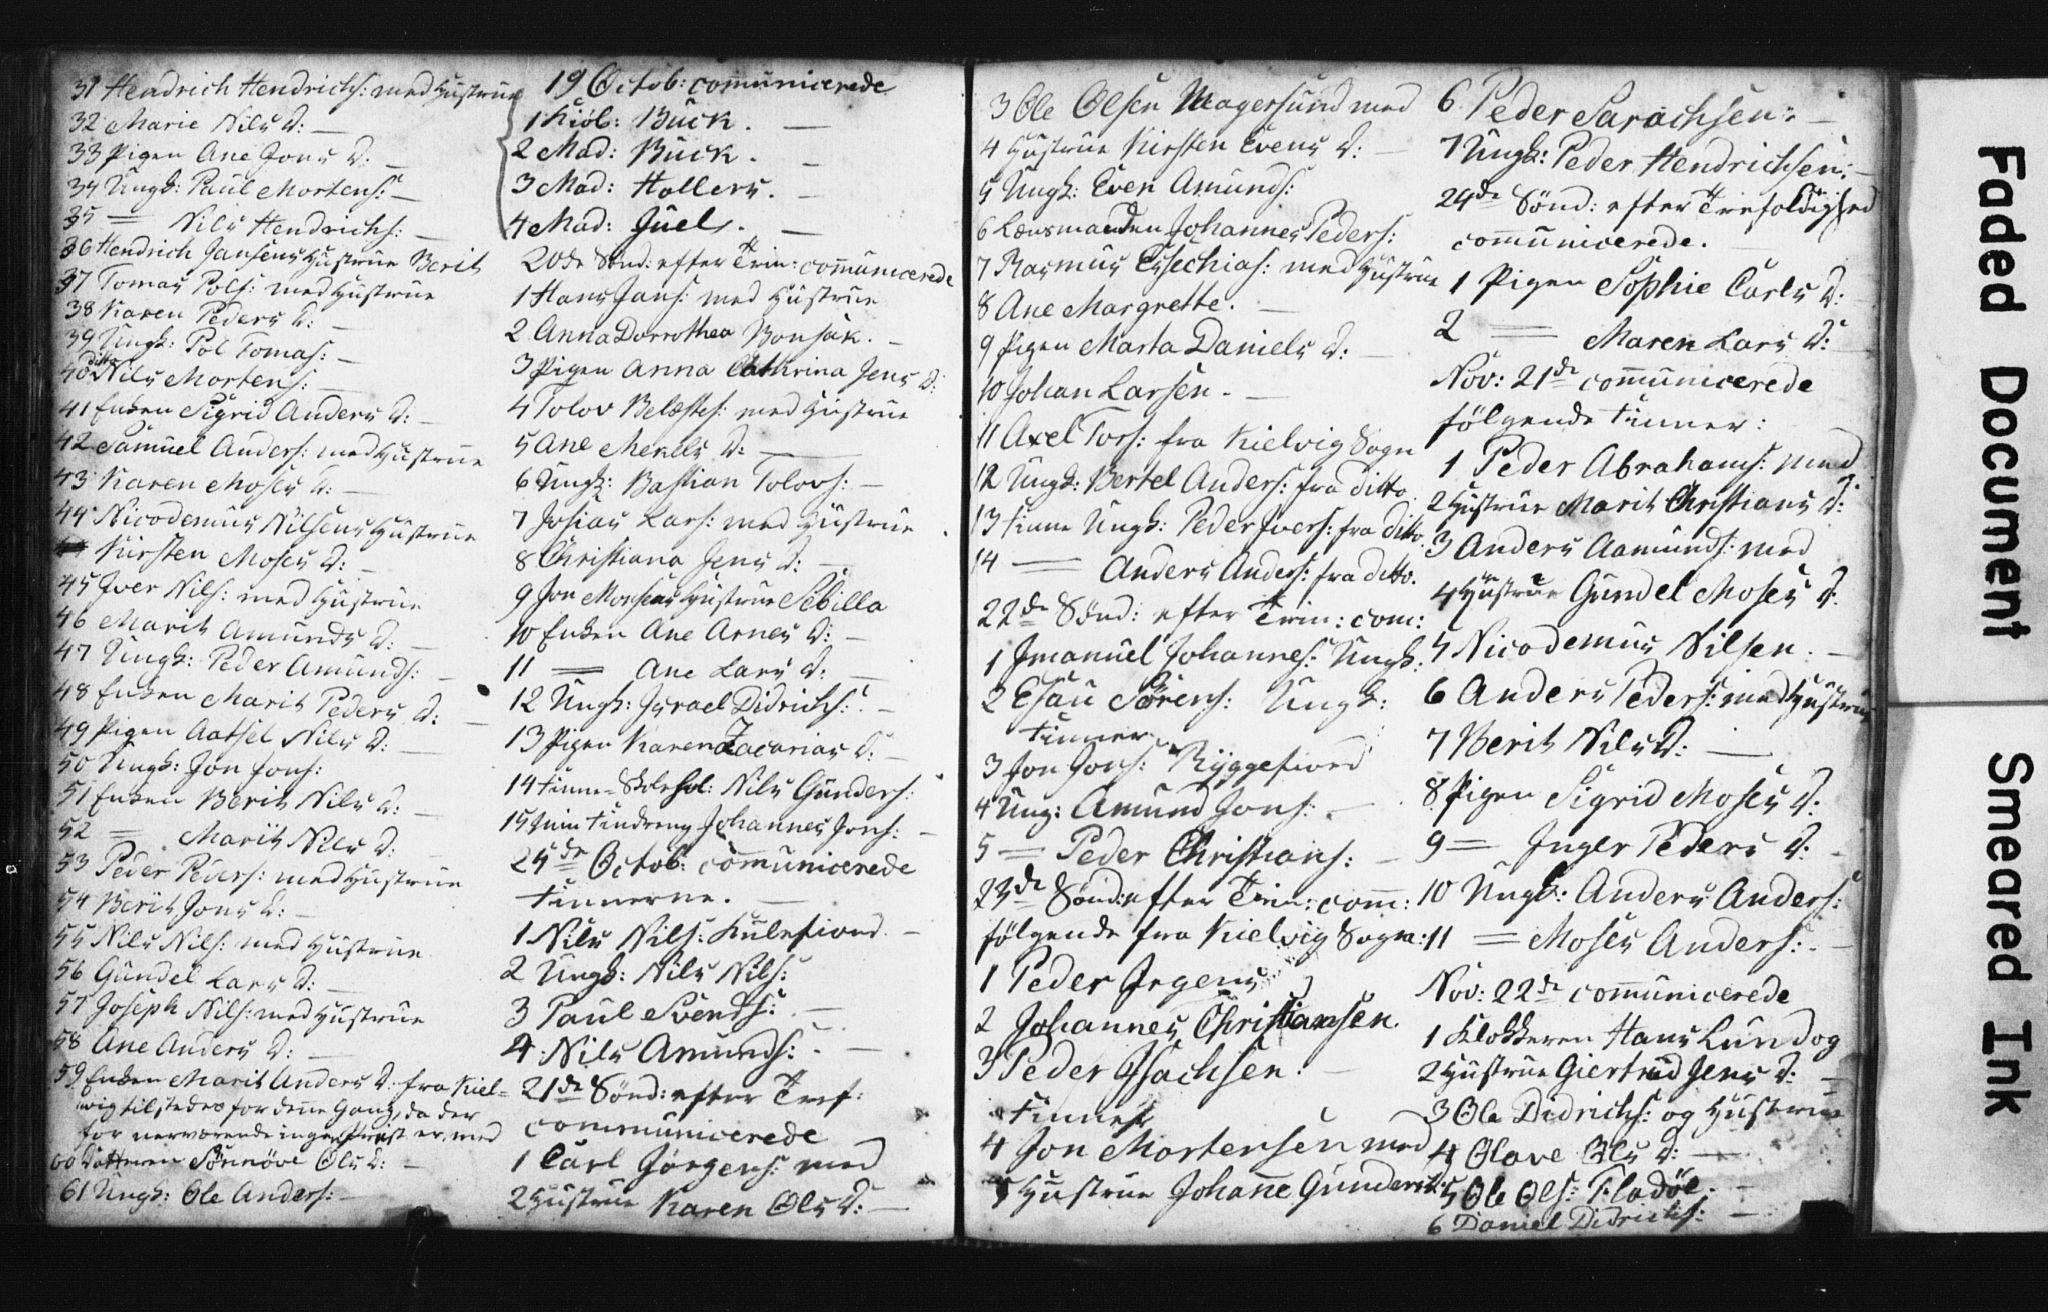 31 Hendrich Hendrichs: med Hustrue
32 Marie Nils D: —
33 Pigen Ane Jons D: —
34 Ungk: Paul Mortens: —
35 = Nils Hendrichs: —
36 Hendrich Jansens Hustrue Berit
37 Tomas Pols: med Hustrue
38 Karen Peders D: —
39 Ungk: Pol Tomas: —
40 ditto Nils Mortens: —
41 Enken Sigrid Anders D: —
42 Samuel Anders: med Hustrue
43 Karen Moses D: —
44 Nicodemus Nilsens Hustrue
Kirsten Moses D: —
45 Iver Nils: med Hustrue
46 Marit Amunds D: —
47 Ungk: Peder Amunds: —
48 Enken Marit Peders D: —
49 Pigen Aatsel Nils D: —
50 Ungk: Jon Jons:
51 Enken Berit Nils D: —
52 = Marit Nils D: —
53 Peder Peders: med Hustrue
54 Berit Jons D: —
55 Nils Nils: med Hustrue
56 Gundel Lars D: —
57 Joseph Nils: med Hustrue
58 Ane Anders D: —
59 Enken Marit Anders D: fra Kiel-
wig tilstedes for denne Gang, da der
for nerværende ingen Præst er, med
60 Datteren Sønnöve Ols D: —
61 Ungk: Ole Anders: —
19 Octob: communicerede
1 Kiöb: Buck. —
2 Mad: Buck. —
3 Mad: Hollers. —
4 Mad: Juel. —
20de Sönd: efter Trin: communicerede
1 Hans Jans: med Hustrue
2 Anna Dorrothea Bonsak. —
3 Pigen Anna Cathrina Jens D:
4 Tolov : med Hustrue
5 Ane D: —
6 Ungk: Bastian Tolovs: —
7 Josias Lars: med Hustrue
8 Christiana Jens D: —
9 Jon Monsens Hustrue Sebilla
10 Enken Ane Arnes D: —
11 = Ane Lars D: —
12 Ungk: Israel Didrichs: —
13 Pigen Karen Zacarias D: —
14 Finne-Skolehol: Nils Gunders:
15 Finndreng Johannes Jons: —
24de Octob: communicerede
Finnerne. —
1 Nils Nils: Kulefiord. —
2 Ungk: Nils Nils:
3 Paul Svends: —
4 Nils Amunds: —
21de Sönd: efter Tref:
communicerede
1 Carl Jörgens: med
2 Hustrue Karen Ols D: —
3 Ole Olsen Magersund med
4 Hustrue Kirsten Evens D: —
5 Ungk: Even Amunds:
6 Lænsmanden Johannes Peders:
7 Rasmus Essechias: med Hustrue
8 Ane Margrette. —
9 Pigen Marta Daniels D: —
10 Johan Larsen. —
11 Axel Tors: fra Kielvig Sogn
12 Ungk: Bertel Anders: fra ditto
13 Finne Ungk: Peder Ivers: fra ditto
14 = Anders Anders: fra ditto.
22de Sönd: efter Trin: com:
1 Imanuel Johannes: Ungk:
2 Esau Sörens: Ungk:
Finner
3 Jon Jons: Ryggefiord
4 Ung: Amund Jons: —
5 = Peder Christians: —
23de Sönd: efter Trin: comm:
fölgende fra Kielvig Sogn:
1 Peder Jrgens
2 Johannes Christiansen.
3 Peder Isachsen. —
Finner
4 Jon Mortensen med
5 Hustrue Johanne Gunders D:
6 Peder Sarachsen: —
7 Ungk: Peder Hendrichsen: —
24de Sönd: efter Trefoldighed
communicerede. —
1 Pigen Sophie Carls D: —
2 = Maren Lars D:
Nov: 21de communicerede
fölgende Finner:
1 Peder Abrahams: med
2 Hustrue Marit Christians D:
3 Anders Aamunds: med
4 Hustrue Gundel Moses D.
5 Nicodemus Nilsen. —
6 Anders Peders: med Hustrue
7 Berit Nils D: —
8 Pigen Sigrid Moses D:
9 = Inger Peders D: —
10 Ungk: Anders Anders:
11 = Moses Anders: —
Nov: 22de communicerede
1 Klokkeren Hans Lund og
2 Hustrue Giertrud Jens D: —
3 Ole Didrichs: og Hustrue
4 Olave Ols D: —
5 Ole Ols: Fladöe. —
6 Daniel Didrichs: —
Faded Document
Smeared Ink